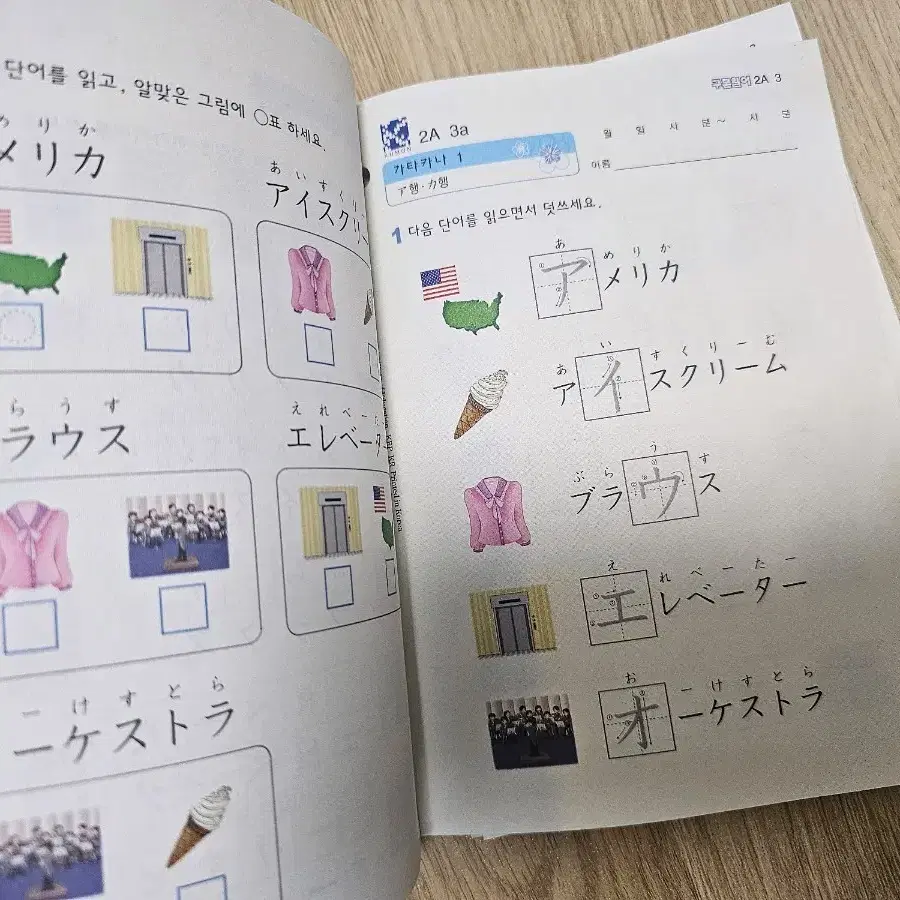 단어를 읽고, 알맞은 그림에 ○표 하세요.
めりか
メリカ
あいすくり
アイスクリー
らうす
ラウス
えれべーた
エレベータ
ーけすとら
ーケストラ
Printed in Korea
구몬일어 2A 3
KUMON
2A 3a
월 일 시 분~ 시 분
가타카나 1
ア행·カ행
이름
1 다음 단어를 읽으면서 덧쓰세요.
あめりか
アメリカ
あいすくりーむ
アイスクリーム
ぶらうす
ブラウス
えれべーたー
エレベーター
おーけすとら
オーケストラ